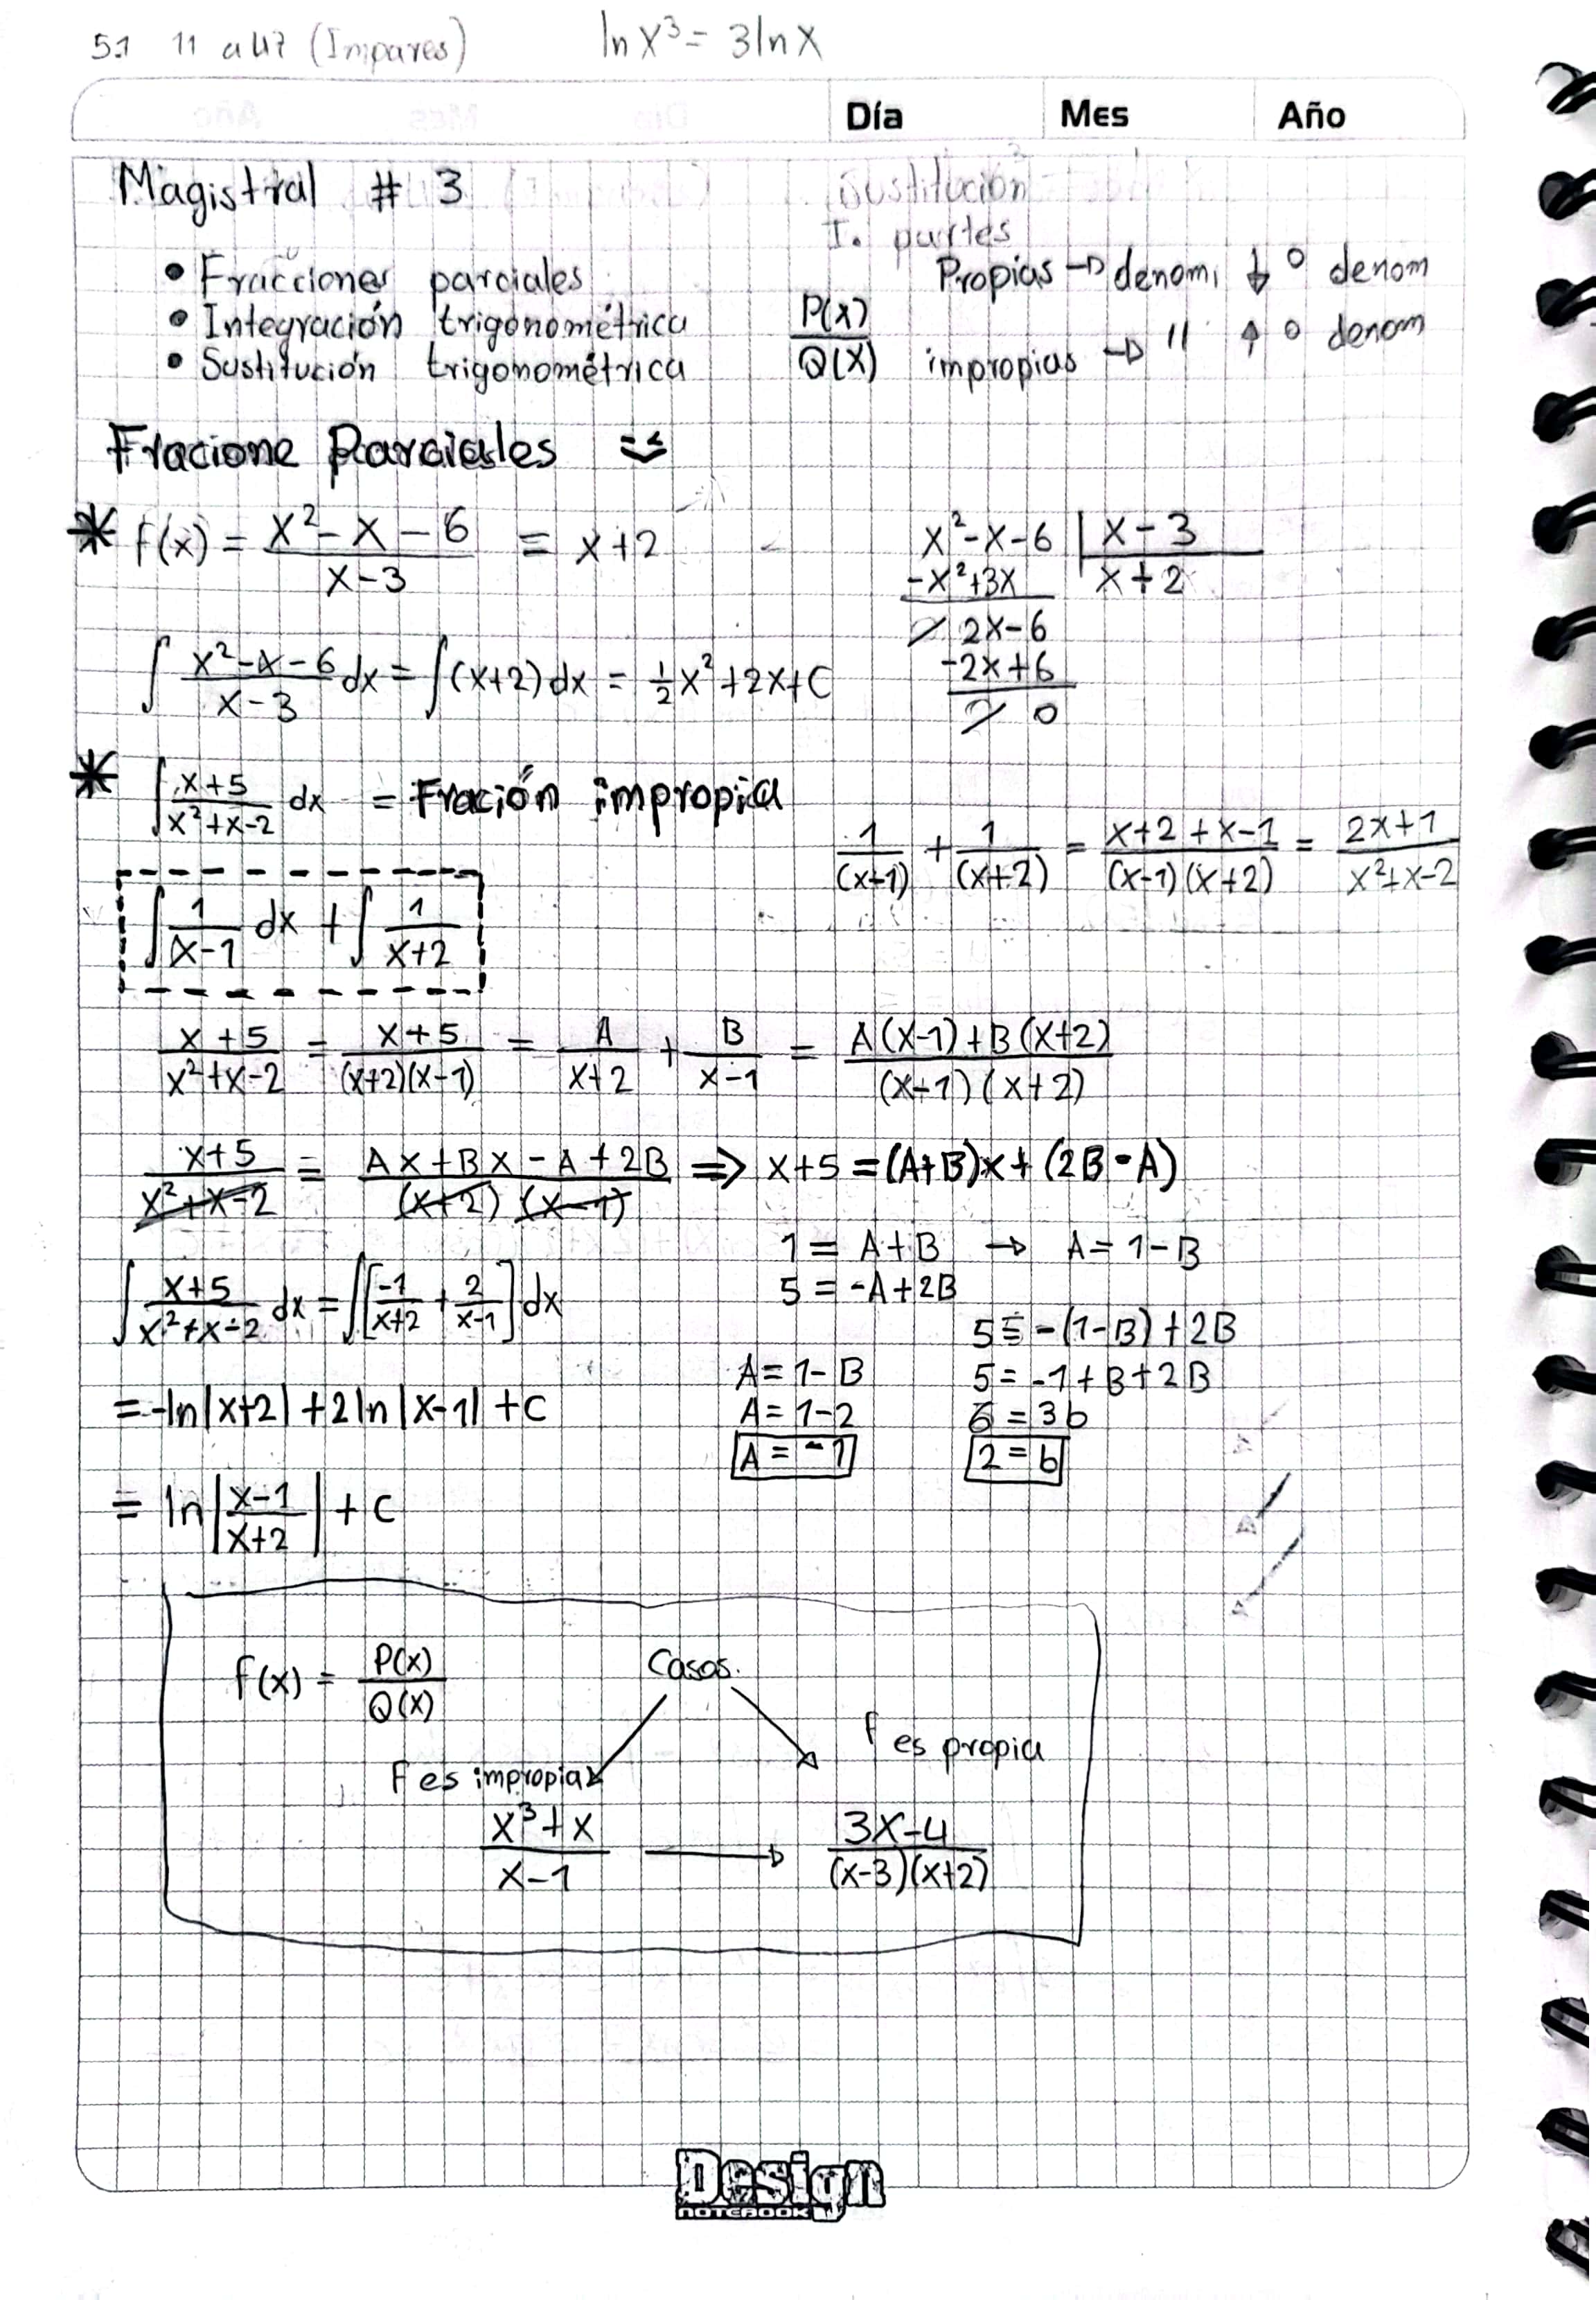 5.1 11 a 47 (Impares) ln x³ = 3 ln x
Día Mes Año
Magistral # 3
Sustitución
I. partes
• Fracciones parciales
• Integración trigonométrica
• Sustitución trigonométrica
P(x)/Q(x)
Propias → denomi ↓ ° denom
impropias → " ↑ ° denom
Fracione Parciales
* f(x) = (x² - x - 6)/(x - 3) = x + 2
x² - x - 6 | x - 3
-x² + 3x x + 2
2x - 6
-2x + 6
0
∫ (x² - x - 6)/(x - 3) dx = ∫ (x+2) dx = ½x² + 2x + C
* ∫ (x+5)/(x²+x-2) dx = Fración impropia
1/(x-1) + 1/(x+2) = (x+2+x-1)/((x-1)(x+2)) = (2x+1)/(x²+x-2)
∫ 1/(x-1) dx + ∫ 1/(x+2)
(x+5)/(x²+x-2) = (x+5)/((x+2)(x-1)) = A/(x+2) + B/(x-1) = (A(x-1)+B(x+2))/((x-1)(x+2))
(x+5)/(x²+x-2) = (Ax+Bx-A+2B)/((x+2)(x-1)) ⇒ x+5 = (A+B)x + (2B-A)
1 = A+B → A = 1-B
5 = -A+2B
∫ (x+5)/(x²+x-2) dx = ∫ [-1/(x+2) + 2/(x-1)] dx
5 = -(1-B)+2B
A = 1-B 5 = -1+B+2B
= -ln|x+2| + 2ln|x-1| + C
A = 1-2 6 = 3b
A = -1 2 = b
= ln|(x-1)/(x+2)| + C
f(x) = P(x)/Q(x) Casos.
f es propia
F es impropia
(x³+x)/(x-1) → (3x-4)/((x-3)(x+2))
Design
NOTEBOOK